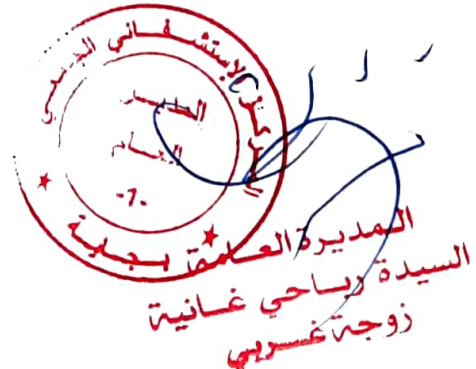 المركز الاستشفائي الجامعي
بجاية
المدير
العام
-7-
المديرة العامة
السيدة رياحي غانية
زوجة غريبي